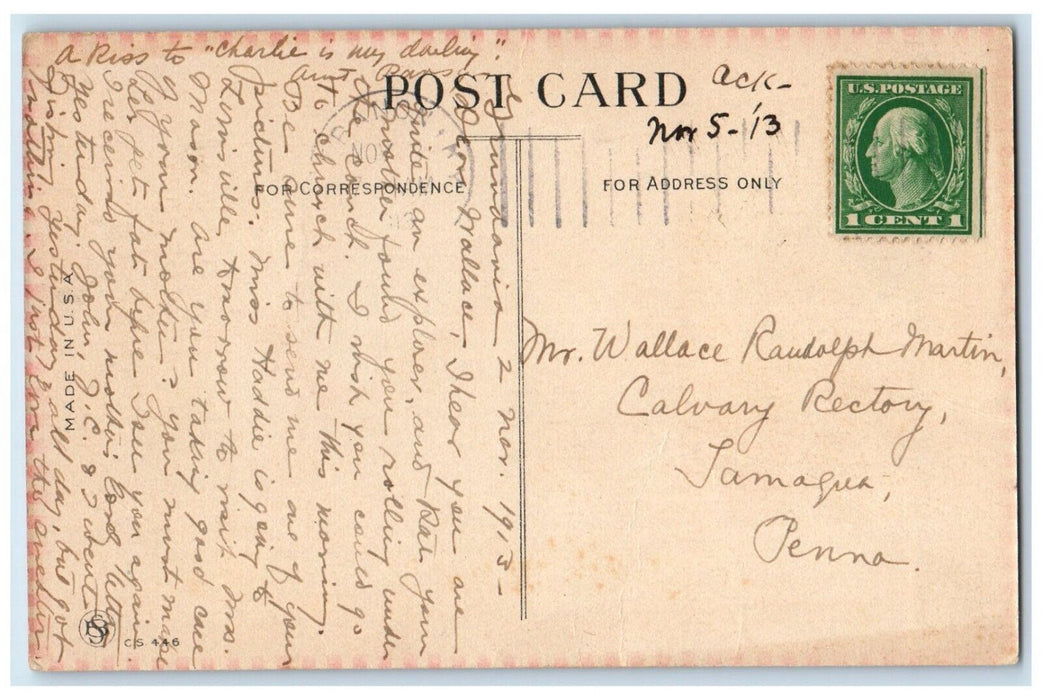 A Kiss to "Charlie is my darling".
Aunt
POST CARD
ack-
Nov 5-'13
U.S. POSTAGE
1 CENT 1
FOR CORRESPONDENCE
FOR ADDRESS ONLY
2 Nov. 1913-
Dear Wallace, I hear you are
quite an explorer, and that your
Grandmother found you rolling under
the couch. I wish you could go
to church with me this morning.
Be sure to send me one of your
pictures. Miss Haddie is going to
Zionsville tomorrow to visit Mrs.
Mason. Are you taking good care
of your mother? You must make
her get fat before I see you again.
I received your mother's card & letter
yesterday. John, J.C. & I went
fishing yesterday all day, but got
nothing.
Mr. Wallace Randolph Martin,
Calvary Rectory,
Tamaqua,
Penna.
MADE IN U.S.A.
C.S. 446